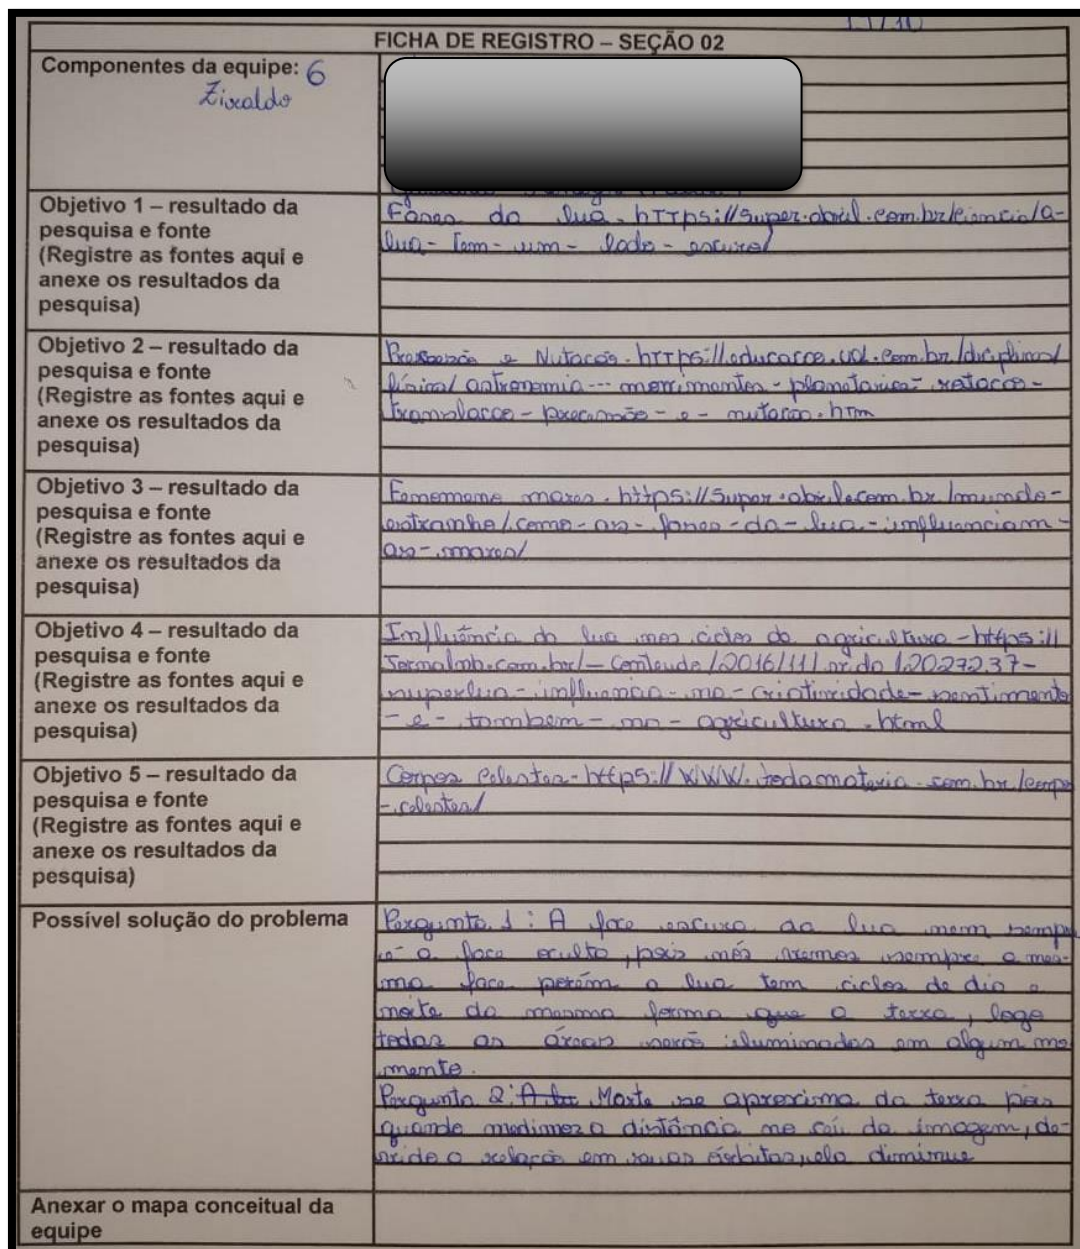 FICHA DE REGISTRO – SEÇÃO 02
Componentes da equipe: 6
Ziraldo
Objetivo 1 – resultado da
pesquisa e fonte
(Registre as fontes aqui e
anexe os resultados da
pesquisa)
Fases da lua - https://super.abril.com.br/ciencia/a-
lua-tem-um-lado-escuro/
Objetivo 2 – resultado da
pesquisa e fonte
(Registre as fontes aqui e
anexe os resultados da
pesquisa)
e Nutação - https://educacao.uol.com.br/disciplinas/
fisica/astronomia---movimentos-planetarios-rotacao-
translacao-precessão-e-nutacao.htm
Objetivo 3 – resultado da
pesquisa e fonte
(Registre as fontes aqui e
anexe os resultados da
pesquisa)
Fenomeno mares - https://super.abril.com.br/mundo-
estranho/como-as-fases-da-lua-influenciam-
as-mares/
Objetivo 4 – resultado da
pesquisa e fonte
(Registre as fontes aqui e
anexe os resultados da
pesquisa)
Influência da lua nos ciclos da agricultura - https://
Jornalnh.com.br/_conteudo/2016/11/vida/2027237-
superlua-influencia-na-criatividade-sentimento
-e-tambem-na-agricultura.html
Objetivo 5 – resultado da
pesquisa e fonte
(Registre as fontes aqui e
anexe os resultados da
pesquisa)
Corpos Celestes - https://WWW.todamateria.com.br/corpo
-celestes/
Possível solução do problema
Pergunta 1: A face escura da lua nem sempre
é a face oculta, pois nós vemos sempre a mes-
ma face porém a lua tem ciclos de dia e
noite da mesma forma que a terra, logo
todas as áreas serão iluminadas em algum mo
mento.
Pergunta 2: Marte se aproxima da terra pois
quando medimos a distância no céu da imagem, de-
vido a relação em suas órbitas, ela diminue
Anexar o mapa conceitual da
equipe